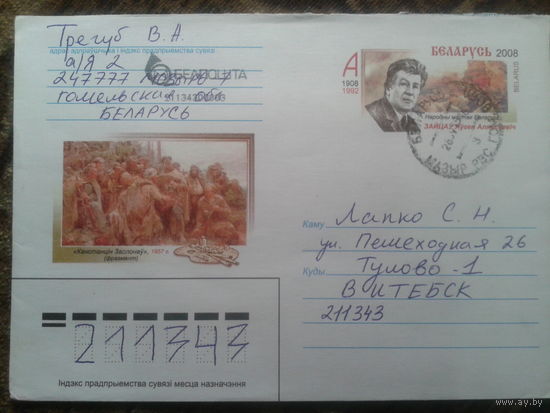 Трегуб В.А.
адрас адпраўшчыка і індэкс прадпрыемства сувязі
а/я 2
БЕЛПОШТА
247777 Мозырь-7
Гомельская обл.
БЕЛАРУСЬ
А
1908
1992
БЕЛАРУСЬ 2008
BELARUS
Народны мастак Беларусі
ЗАЙЦАЎ
МАЗЫР
«Канстанцін Заслонаў», 1957 г.
(фрагмент)
Каму Лапко С. Н.
ул. Пешеходная 26
Куды Тулово-1
ВИТЕБСК
211343
211343
Індэкс прадпрыемства сувязі месца назначэння
ay.by